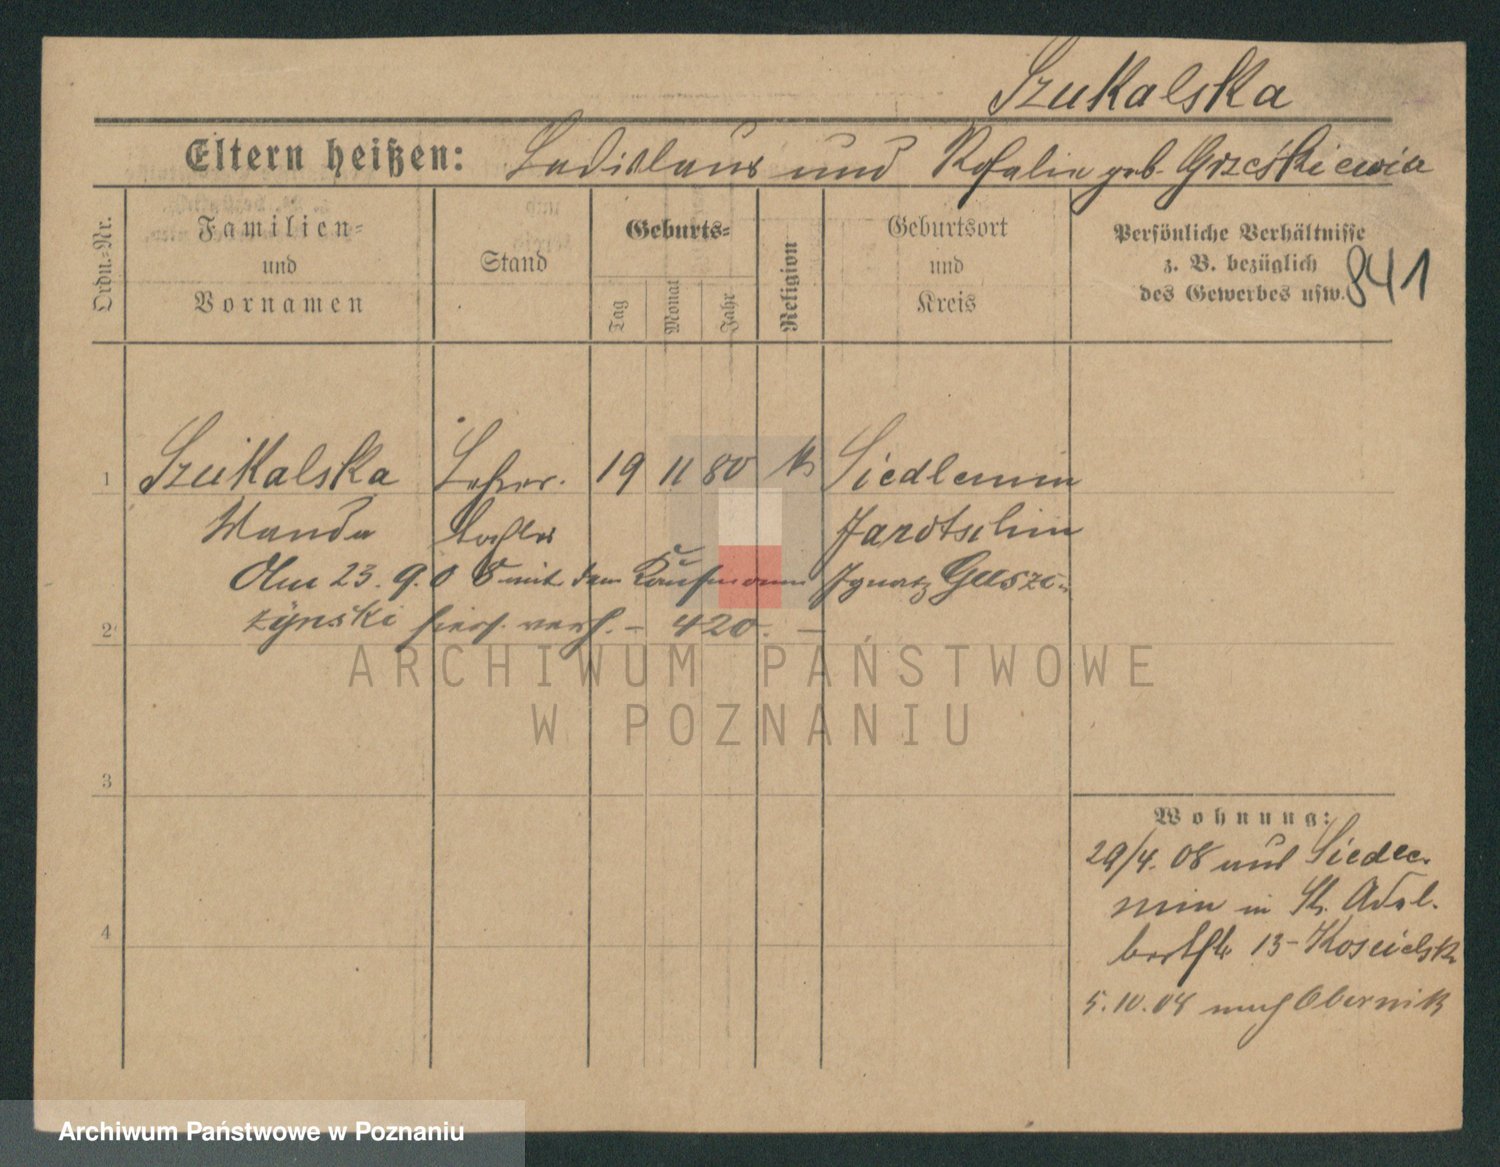 Szukalska
Eltern heißen: Ladislaus und Rosalie geb. Grześkiewicz
Ordn.-Nr.
Familien-
und
Vornamen
Stand
Geburts-
Tag
Monat
Jahr
Religion
Geburtsort
und
Kreis
Persönliche Verhältnisse
z. B. bezüglich
des Gewerbes usw.
841
1 Szukalska Lehrer- 19 11 80 k Siedlemin
Wanda tochter Jarotschin
Am 23. 9. 08 mit dem Kaufmann Ignatz Gusz-
2 zynski hier verh. - 420. -
3
4
Wohnung:
29/4. 08 aus Siedle-
min in St. Adal-
bertstr 13 - Koscielsk
5. 10. 08 nach Obernik
ARCHIWUM PAŃSTWOWE
W POZNANIU
Archiwum Państwowe w Poznaniu